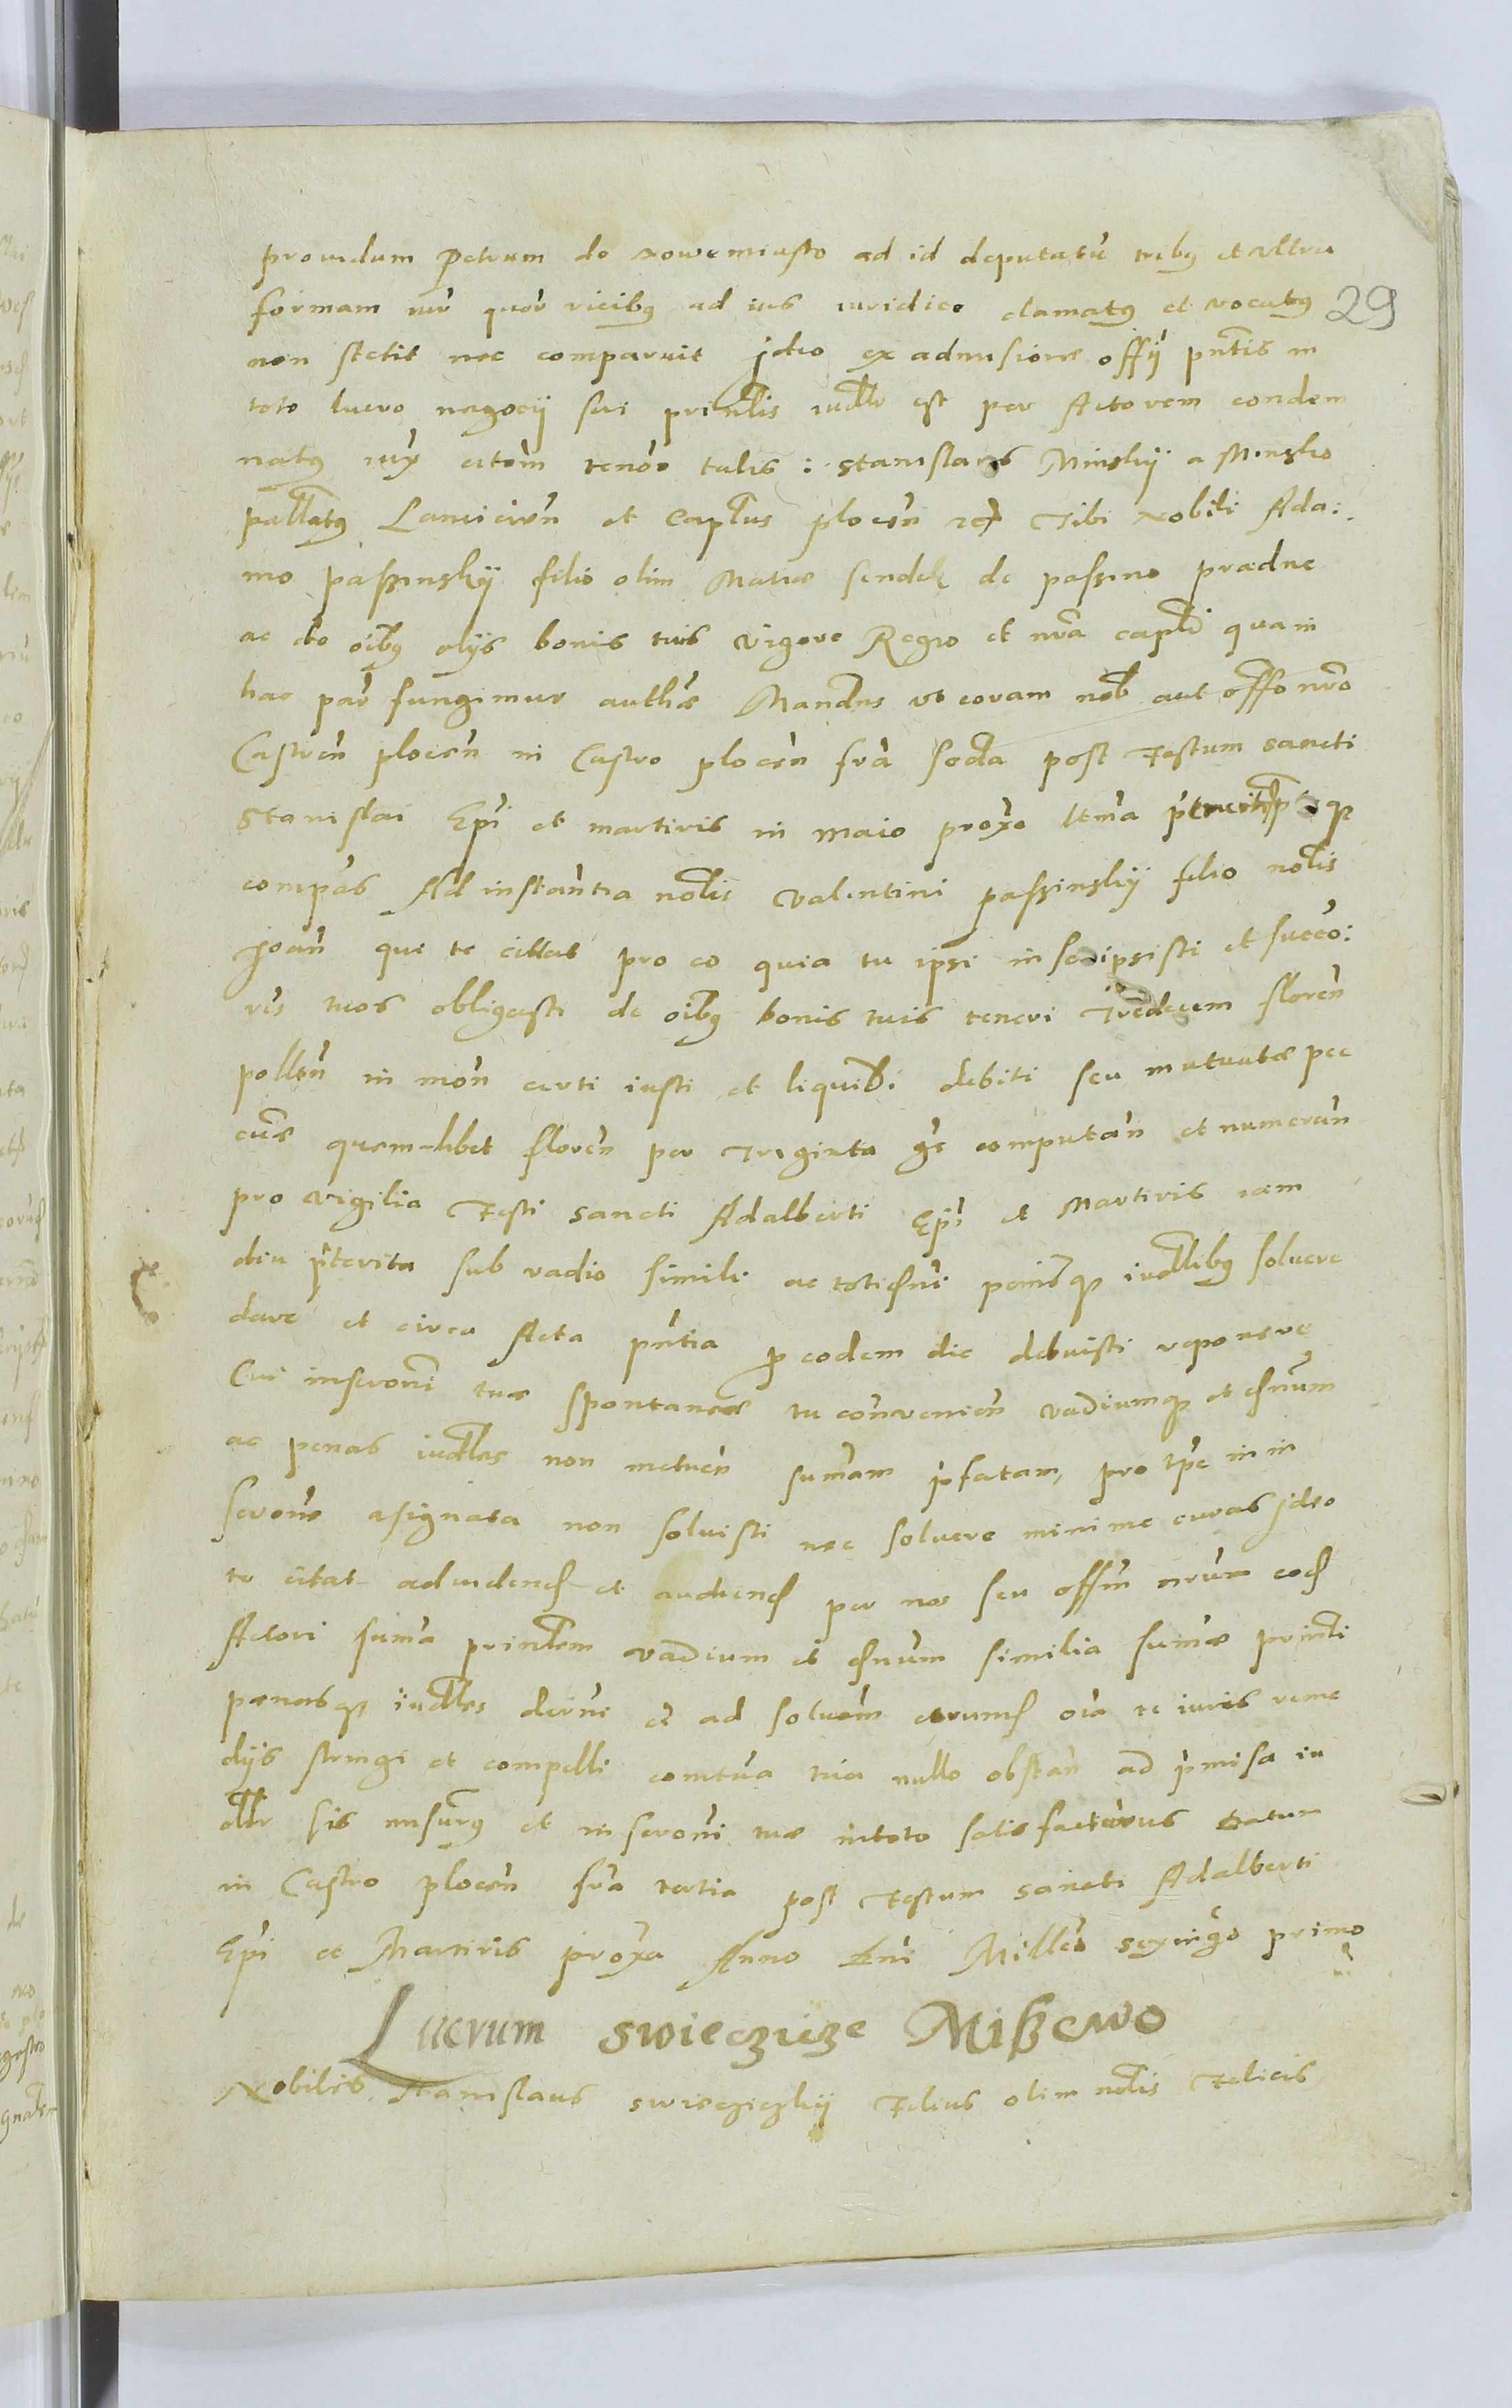 providum Petrum de nowemiasto ad id deputatū tribq et ultra
formam iur quor vicibq ad ius iuridice clamatq et vocatq
29
non stetit nec comparuit jdeo ex admisione offÿ pntis in
toto lucro negocÿ sui prinlis iudllr est per Actorem condem
natq iux citõm tenore talis : Stanislaus Minskÿ a Minsko
pallatq Lanicien et Caplneus plocen Tibi Nobili Ada:
mo passinskÿ filio olim Matiæ sendek de passino prædne
ac de oibq alÿs bonis tuis vigore Regio et nra capli qua in
hac par fungimur authe Mandus ut coram nob aut offo nro
Castren plocen in Castro plocen fra Scda post Festum sancti
Stanislai Epi et martiris in maio proxo ltma
compas Ad instantia nolis valentini passinskÿ filio nolis
Joan qui te cittat pro eo quia tu ipsi inscripsisti et succo:
res tuos obligasti de oibq bonis tuis teneri Tredecem floren
pollen in mon certi iusti et liquidi debiti seu mutuatæ pec
cuæ quemlibet floren per Triginta gr computan et numeran
pro vigilia Festi sancti Adalberti Epi et Martiris iam
diu pterita sub vadio simili ac poenisqз iudlibq soluere
dare et circa Acta pntia p eodem die debuisti reponere
Cui inscroni tuæ spontaneæ tu convenien vadiumqз et dnum
ac penas iudles non metuen sumam pfatam, pro tpe in in
scrone asignata non soluisti nec soluere minime curas jdeo
te citat ad videnđ et audienđ per nos seu offm nrum eođ
Actori suma prinlem vadium et dnum similia sumæ prinli
penasqз iudles decrni et ad soluem eorumđ oia te iuris reme
dÿs stringi et compelli contua tua nullo obstan ad pmisa iu
dllr sis rnsurq et inscroni tuæ intoto satisfacturus Datum
in Castro plocen fra tertia post Festum sancti Adalberti
Epi et Martiris proxa Anno Dni Milleo sexingo primo
Lucrum swieczicze Miszewo
Nobilis Stanislaus swieczickÿ Filius olim nolis Felicis